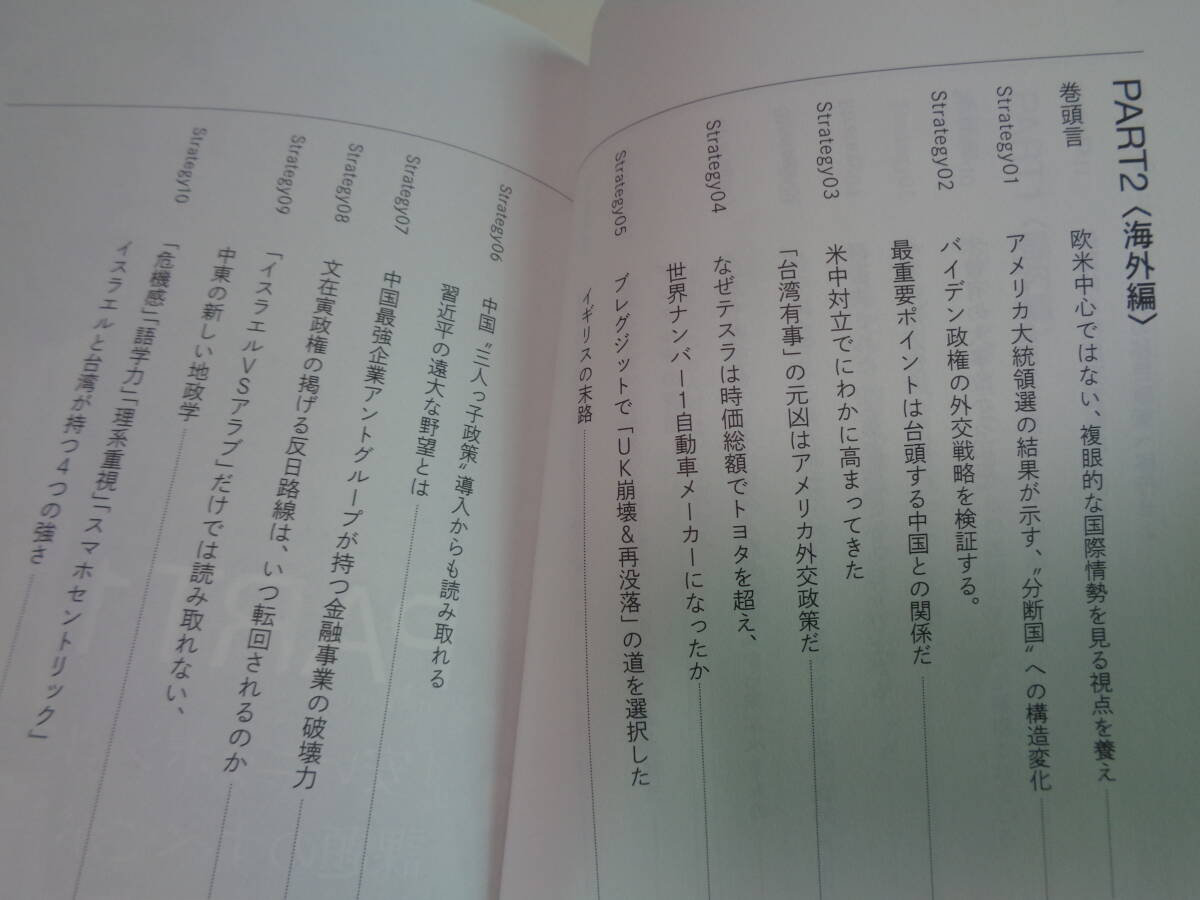 PART2〈海外編〉
巻頭言
欧米中心ではない、複眼的な国際情勢を見る視点を養え
Strategy01
アメリカ大統領選の結果が示す、〝分断国〟への構造変化
Strategy02
バイデン政権の外交戦略を検証する。
最重要ポイントは台頭する中国との関係だ
Strategy03
米中対立でにわかに高まってきた
「台湾有事」の元凶はアメリカ外交政策だ
Strategy04
なぜテスラは時価総額でトヨタを超え、
世界ナンバー1自動車メーカーになったか
Strategy05
ブレグジットで「UK崩壊&再没落」の道を選択した
イギリスの末路
Strategy06
中国〝三人っ子政策〟導入からも読み取れる
習近平の遠大な野望とは
Strategy07
中国最強企業アントグループが持つ金融事業の破壊力
Strategy08
文在寅政権の掲げる反日路線は、いつ転回されるのか
Strategy09
「イスラエルVSアラブ」だけでは読み取れない、
中東の新しい地政学
Strategy10
「危機感」「語学力」「理系重視」「スマホセントリック」
イスラエルと台湾が持つ4つの強さ
PART 1